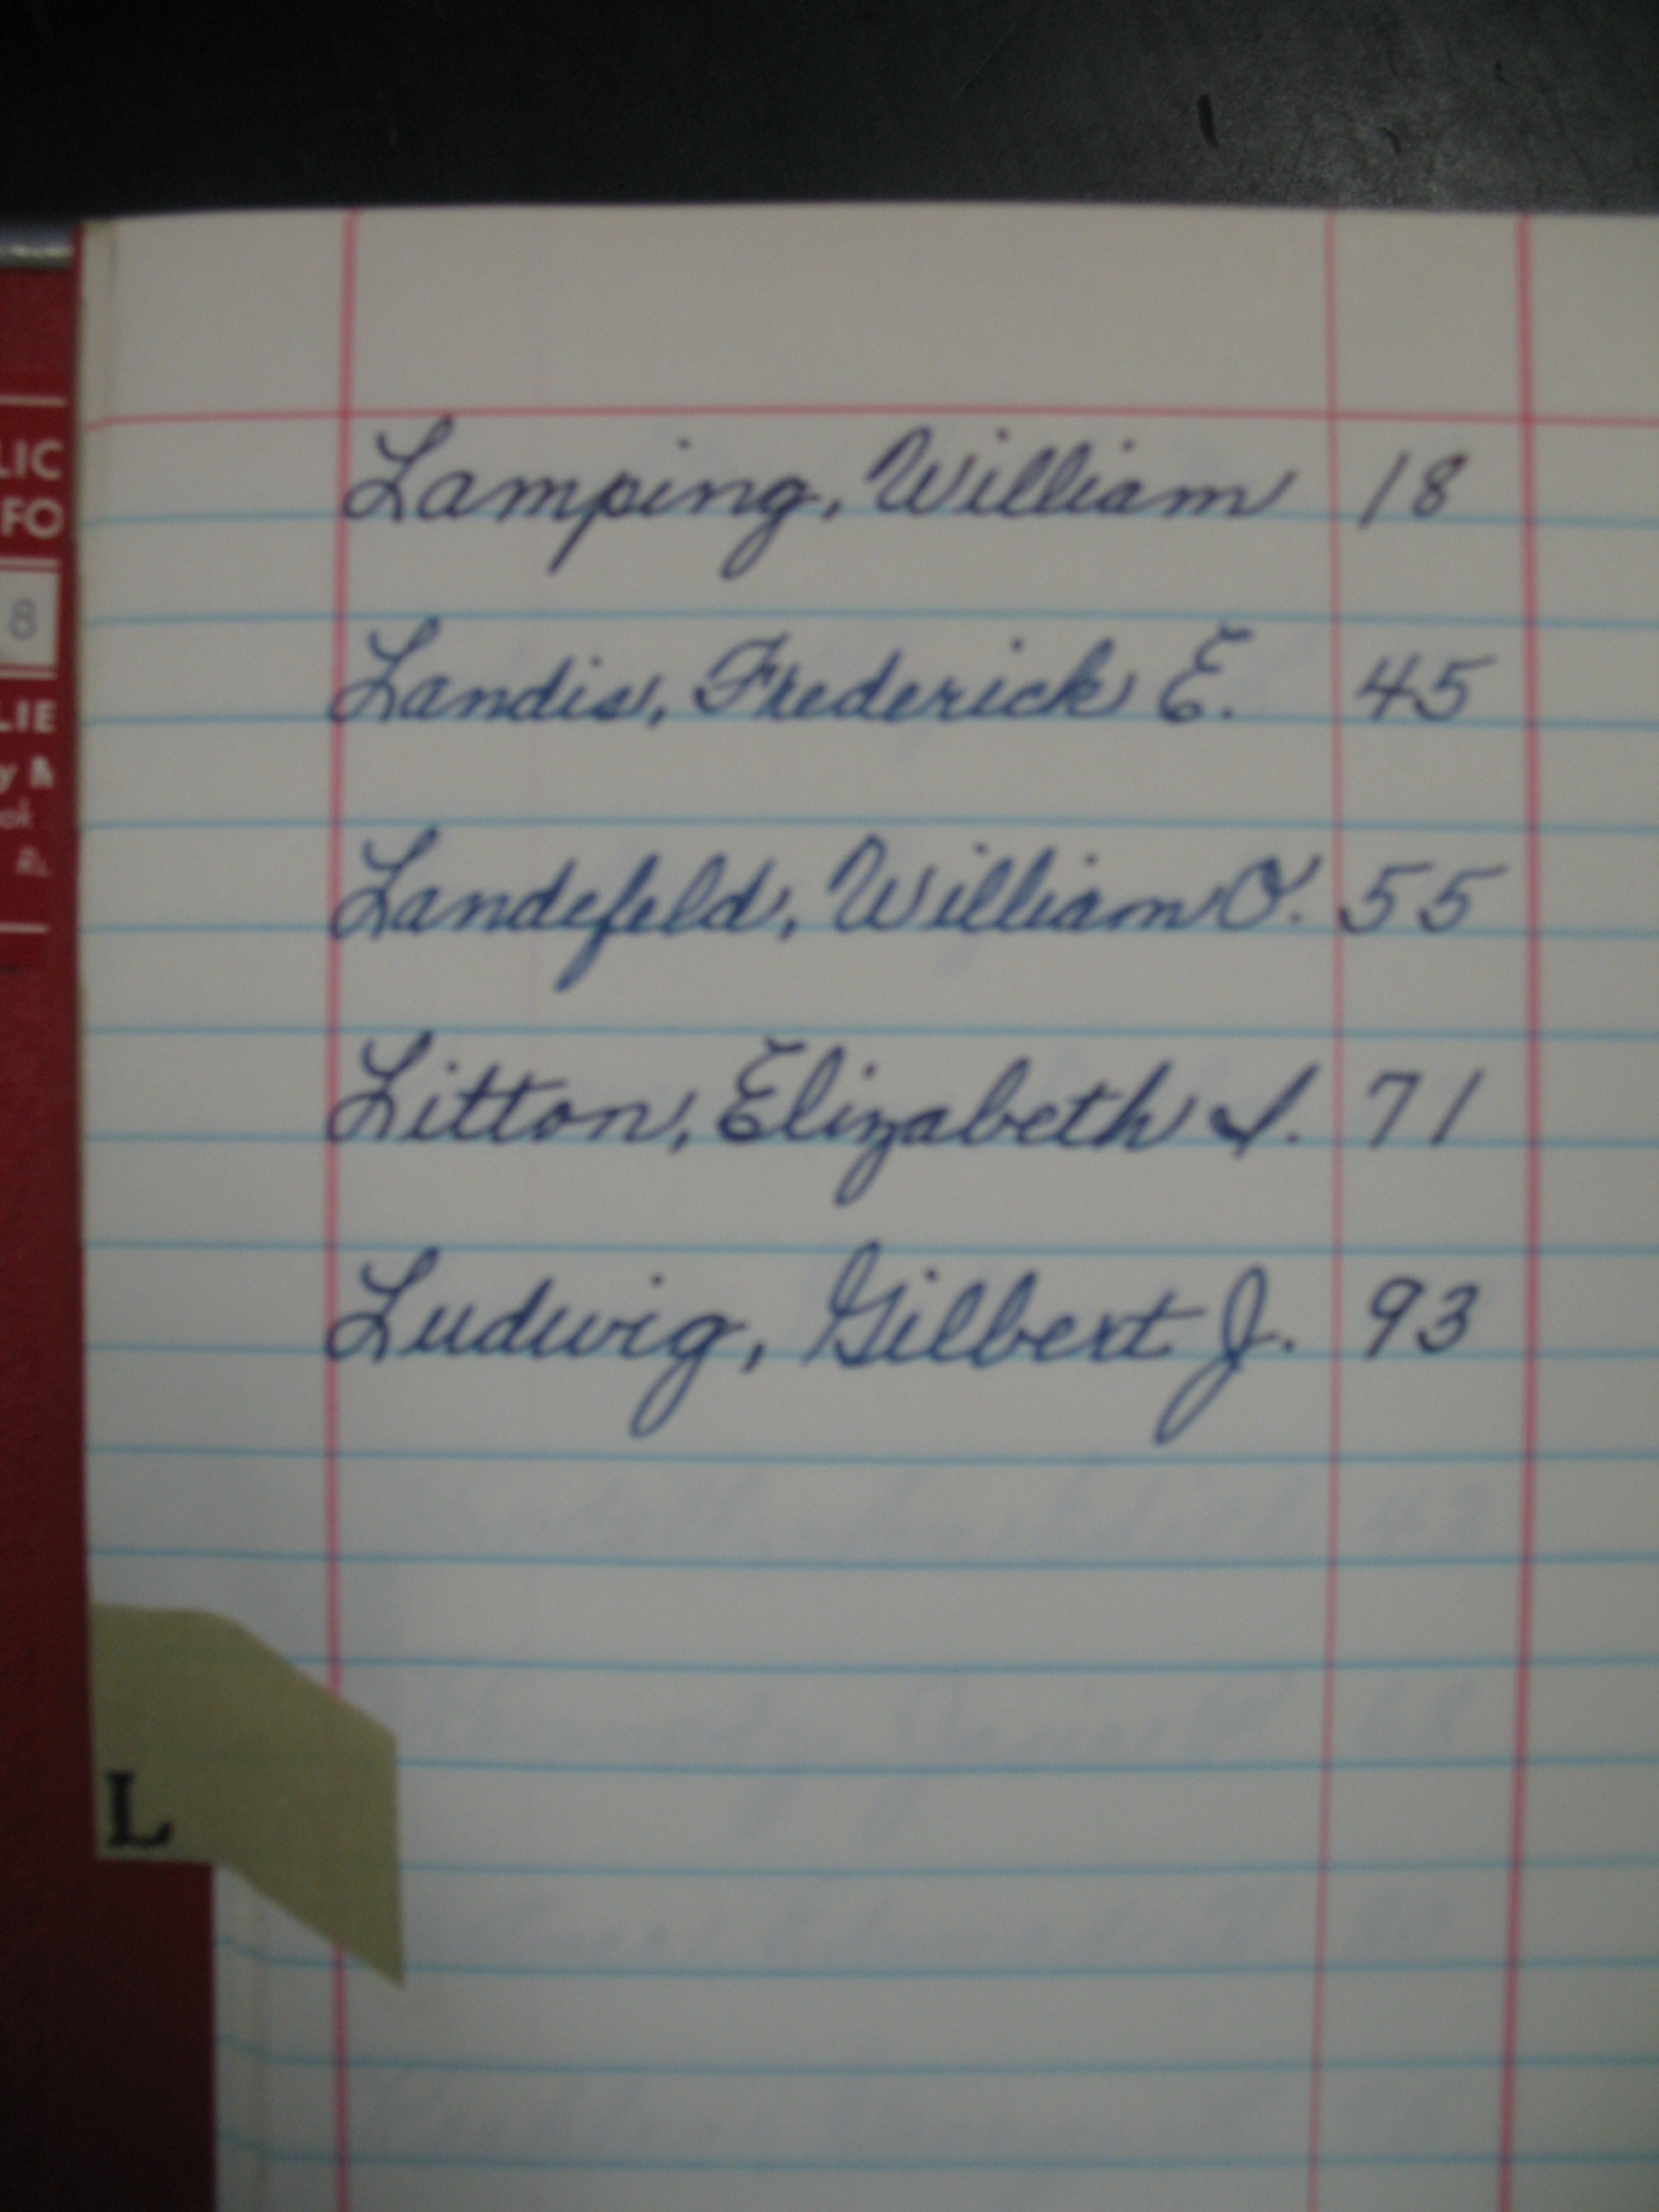 LIC
FO
8
LIE
Lamping, William 18
Landis, Frederick E. 45
Landefeld, William O. 55
Litton, Elizabeth I. 71
Ludwig, Gilbert J. 93
L